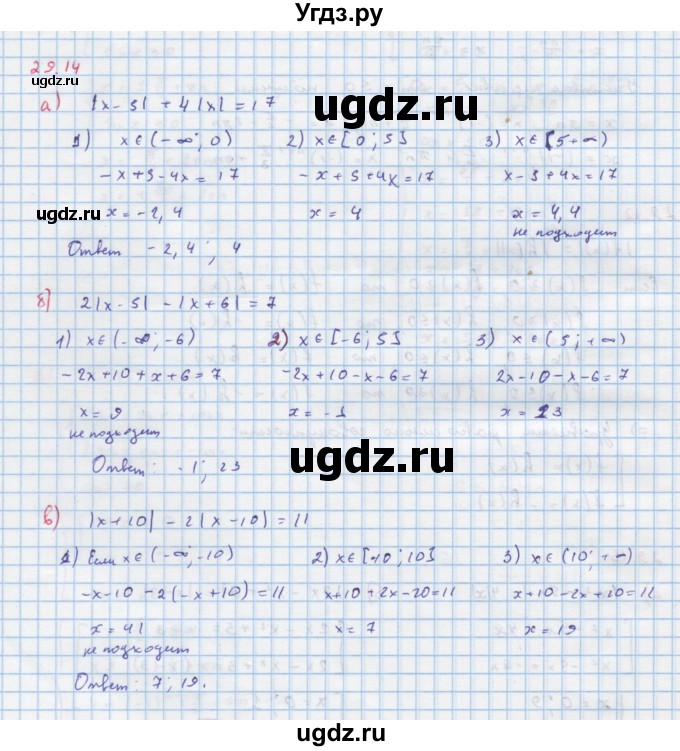 Угдз.ру
29.14
а) |x - 5| + 4|x| = 17
1) x ∈ (-∞; 0) 2) x ∈ [0; 5] 3) x ∈ [5 + ∞)
-x + 5 - 4x = 17 -x + 5 + 4x = 17 x - 5 + 4x = 17
x = -2,4 x = 4 x = 4,4
не подходит
Ответ -2,4; 4
б) 2|x - 5| - |x + 6| = 7
1) x ∈ (-∞; -6) 2) x ∈ [-6; 5] 3) x ∈ (5; +∞)
-2x + 10 + x + 6 = 7 -2x + 10 - x - 6 = 7 2x - 10 - x - 6 = 7
x = 9 x = -1 x = 23
не подходит
Ответ: -1; 23
в) |x + 10| - 2|x - 10| = 11
1) Если x ∈ (-∞; -10) 2) x ∈ [-10; 10] 3) x ∈ (10; +∞)
-x - 10 - 2(-x + 10) = 11 x + 10 + 2x - 20 = 11 x + 10 - 2x + 20 = 11
x = 41 x = 7 x = 19
не подходит
Ответ: 7; 19.
ugdz.ru
ugdz.ru
ugdz.ru
ugdz.ru
ugdz.ru
ugdz.ru